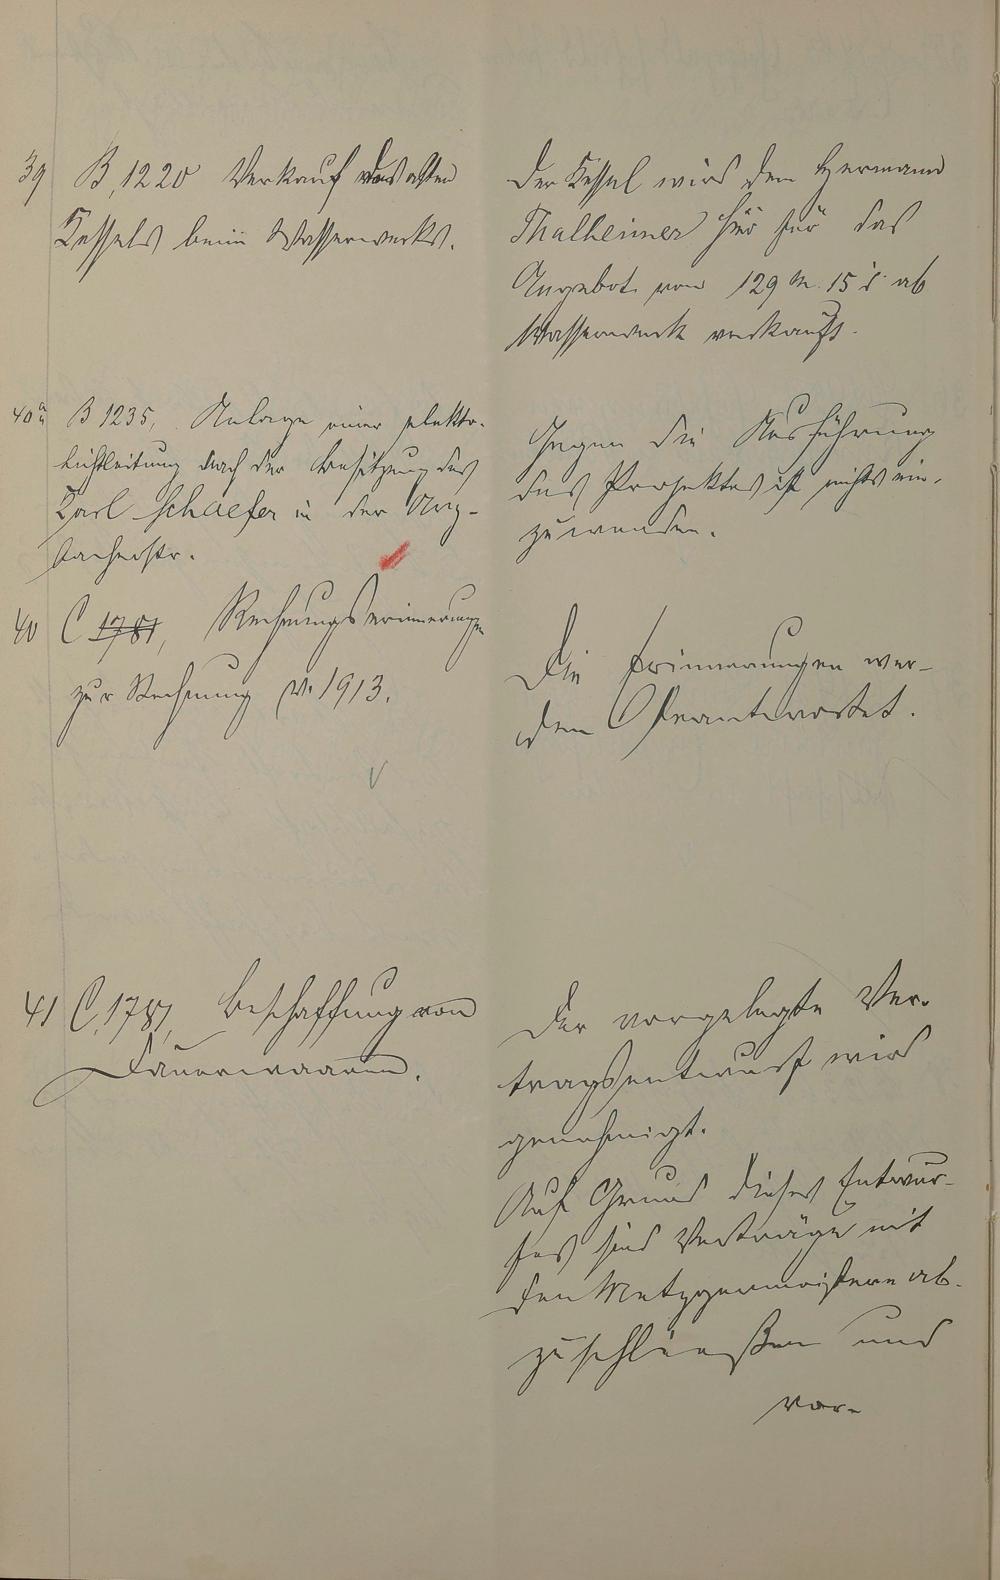 39 B, 1220 Verkauf des alten
Kessels beim Wasserwerks.
Der Kessel wird dem Hermann
Thalheimer hier für das
Angebot von 129 M. 15 ₰ ab
Wasserwerk verkauft.
40a B 1235, Anlage einer elektr.
Lichtleitung durch der Besitzung des
Karl Schaefer in der
Gegen die Ausführung
des Projektes ist nichts ein-
zuwenden.
40 C 1781, Rechnungserinnerungen
zur Rechnung v. 1913.
Die Erinnerungen wer-
den beantwortet.
41 C, 1787, Beschaffung von
Dauerwaaren.
Der vorgelegte Ver-
tragsentwurf wird
genehmigt.
Auf Grund dieses Entwur-
fes sind Verträge mit
den Metzgermeistern ab-
zuschließen und
vor-